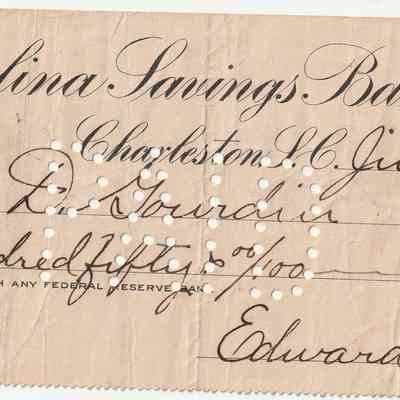 lina Savings Ba
Charleston, S.C. Ju
D. Gourdin
dred fifty & 00/100
H ANY FEDERAL RESERVE BANK
Edward